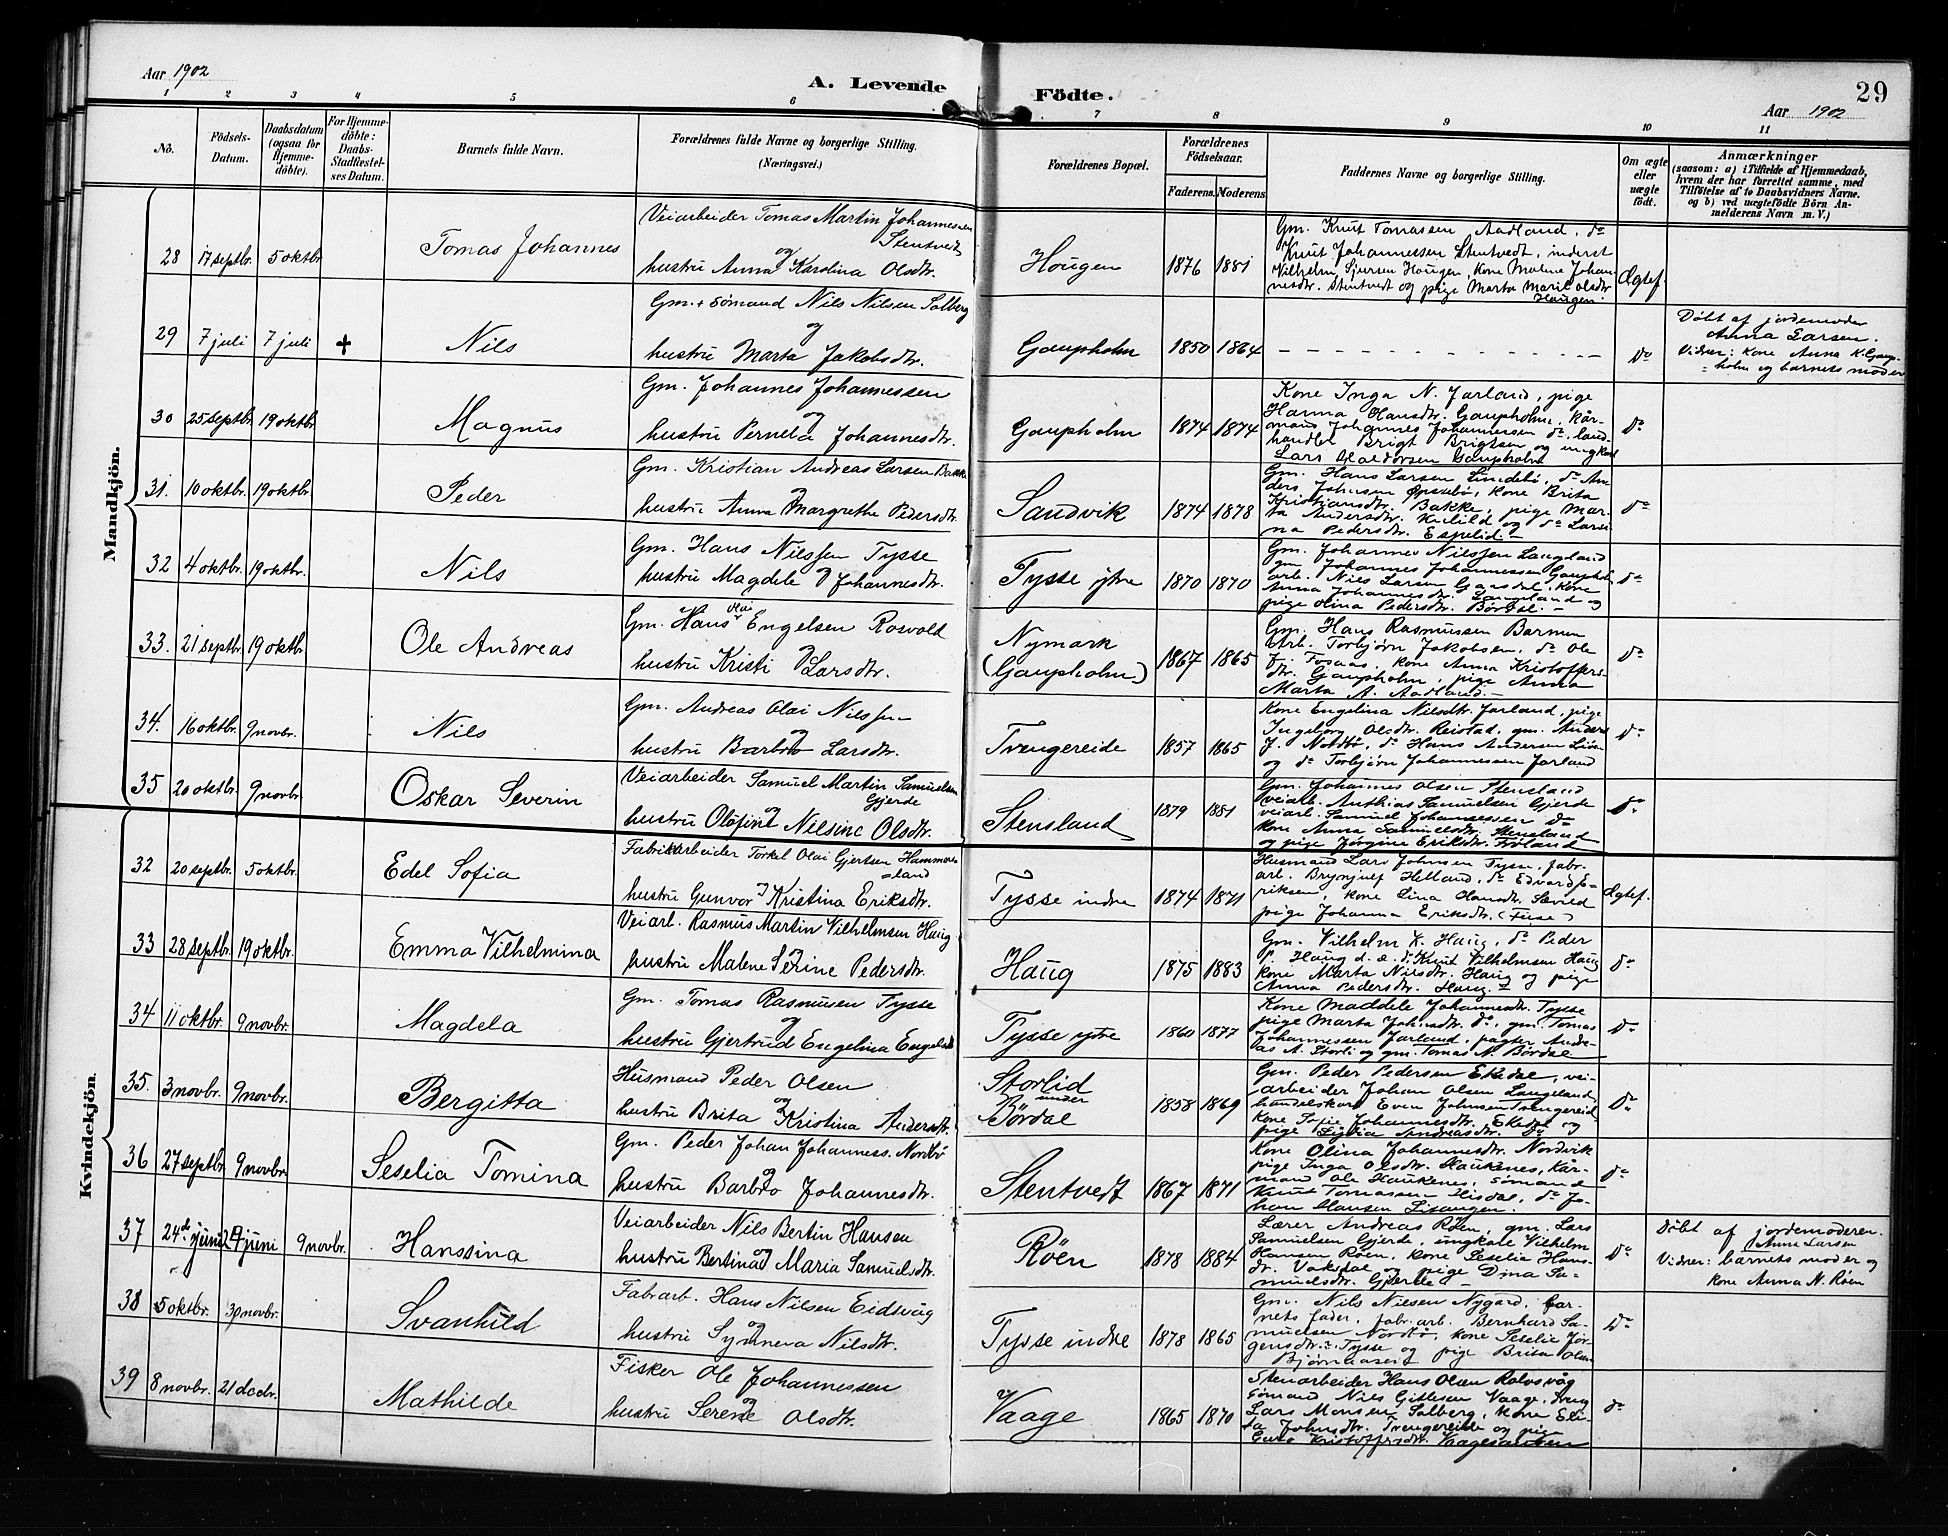 Aar 1902
A. Levende Födte.
29
Aar 1902
1 2 3 4 5 6 7 8 9 10 11
Nö.
Födsels-Datum.
Daabsdatum (ogsaa for Hjemme-döbte).
For Hjemme-döbte: Daabs-Stadfæstel-ses Datum.
Barnets fulde Navn.
Forældrenes fulde Navne og borgerlige Stilling.
(Næringsvei.)
Forældrenes Bopæl.
Forældrenes Födselsaar.
Faderens. Moderens.
Faddernes Navne og borgerlige Stilling.
Om ægte eller uægte födt.
Anmærkninger
(saasom: a) i Tilfælde af Hjemmedaab, hvem der har forrettet samme, med Tilföielse af to Daabsvidners Navne. og b) ved uægtefödte Börn An-melderens Navn m. V.)
Mandkjön.
28 17 septbr. 5 oktbr. Tomas Johannes
Veiarbeider Tomas Martin Johannessen Stentvedt
og
hustru Anna Karolina Olsdtr.
Hougen 1876 1881
Gm. Knut Tomassen Aadland, do
Knut Johannessen Stentvedt, inderst
Vilhelm Sjursen Hougen, kone Malene Johan-
nesdtr. Stentvedt og pige Marta Marit Olsdtr
Haugen.
Ægtef.
29 7 juli 7 juli + Nils
Gm. + Sömand Nils Nilsen Solberg
og
hustru Marta Jakobsdtr.
Gaupholm 1850 1864
- - - - - - - - - - - -
do
Döbt af jordemoder
Anna Larsen.
Vidner: kone Anna K. Gaup-
holm og barnets moder
30 25 septbr 19 oktbr. Magnus
Gm. Johannes Johannessen
og
hustru Pernela Johannesdtr.
Gaupholm 1874 1874
Kone Inga N. Jarland, pige
Hanna Hansdtr. Gaupholm, kår-
mand Johannes Johannessen do, land-
handler Brigt Brigtsen og ungkarl
Lars Haldorsen Gaupholm
do
31. 10 oktbr. 19 oktbr. Peder
Gm. Kristian Andreas Larsen Bakke
og
hustru Anna Margrethe Pedersdtr.
Sandvik 1874 1878
Gm. Hans Larsen Lindebö, do An-
ders Johnsen Øpsebö, kone Brita
Kristiansdtr. Bakke, pige Mar-
ta Andersdtr. Kulild og do Larsi-
na Pedersdtr. Espelid.
do
32 4 oktbr. 19 oktbr. Nils
Gm. Hans Nilssen Tysse
hustru Magdele Johannesdtr.
Tysse ytre 1870 1870
Gm. Johannes Nilssen Langeland
gm Johannes Johannessen Gaupholm
arb. Nils Larsen Gaasdal, kone
Anna Johannesdtr. Langeland og
pige Olina Pedersdtr. Börtse.
do
33. 21 septbr. 19 oktbr Ole Andreas
Gm. Hans Olai Engelsen Rosvold
og
hustru Kristi Larsdtr.
Nymark
(Gaupholm) 1867 1865
Gm. Hans Rasmussen Barmen
Arb. Torbjørn Jakobsen, do Ole
J. Fosaas, kone Anna Kristoffers-
dtr. Gaupholm, pige Anna
Marta A. Aadland.
do
34. 16 oktbr. 9 novbr. Nils
Gm. Andreas Olai Nilssen
og
hustru Barbro Larsdtr.
Trengereide 1857 1865
Kone Engelina Nilsdtr. Jarland, pige
Ingeborg Olsdtr. Reistad, gm. Anders
J. Nordbö, do Hans Andersen
og do Torbjørn Johannessen Jarland
do
35 20 oktbr. 9 novbr. Oskar Severin
Veiarbeider Samuel Martin Samuelsen Gjerde
og
hustru Olofine Nilsine Olsdtr.
Stensland 1879 1881
Gm. Johannes Olsen Stensland
veiarb. Anthias Samuelsen Gjerde
veiarb. Samuel Johannessen do
kone Anna Samuelsdtr. Stensland
og pige Jørgine Eriksdtr. Förland
do
Kvindekjön.
32 20 septbr. 5 oktbr. Edel Sofia
Fabrikarbeider Torkel Olai Gjertsen Hammers-
land
hustru Gunvor Kristina Eriksdtr.
Tysse indre 1874 1871
Husmand Lars Johnsen Tysse, fabr.
arb. Brynjulf Helland, do Edvard E-
riksen, kone Lina Hansdtr.
pige Johanna Eriksdtr. (Fuse)
Ægtef.
33 28 septbr. 19 oktbr. Emma Vilhelmina
Veiarb. Rasmus Martin Vilhelmsen Haug
hustru Malene Serine Pedersdtr.
Haug 1875 1883
Gm. Vilhelm K. Haug, do Peder
P. Haug d. e. do Knut Vilhelmsen Haug
kone Marta Nilsdtr. Haug og pige
Anna Pedersdtr. Haug.
do
34 11 oktbr. 9 novbr. Magdela
Gm. Tomas Rasmusen Tysse
og
hustru Gjertrud Engelina Engelsdtr
Tysse ytre 1860 1877
Kone Maddele Johannesdtr. Tysse
pige Marta Johnsdtr. do, gm. Tomas
Johannessen Jarland, pagter Andre-
as A. Storli og gm. Tomas N. Bördal
do
35. 3 novbr. 9 novbr. Bergitta
Husmand Peder Olsen
og
hustru Brita Kristina Andersdtr.
Storlid
under
Bördal 1858 1869
Gm. Peder Pedersen Ekedal, vei-
arbeider Johan Olsen Langeland,
handelskar Even Johnsen Trengereid
kone Sofie Johannesdtr. Ekedal og
pige Lydia Andreasdtr. do
do
36 27 septbr. 9 novbr. Seselia Tomina
Gm. Peder Johan Johanness. Nordbö
og
hustru Barbro Johannesdtr.
Stentvedt 1867 1871
Kone Olina Johannesdtr. Nordvik
pige Inga Olsdtr. Haukenes, kår-
mand Ole Haukenes, sömand
Knut Tomassen Hisdal, do Jo-
han Hansen
do
37 24de juni 24 juni 9 novbr. Hanssina
Veiarbeider Nils Bertin Hansen
og
hustru Bertina Maria Samuelsdtr.
Röen 1878 1884
Lærer Andreas Röen, gm. Lars
Samuelsen Gjerde, ungkarl Vilhelm
Hansen Röen, kone Seselia Hans-
dtr. Vaksdal og pige Dina Sa-
muelsdtr. Gjerde
do
Döbt af jordemoderen
Anna Larsen
Vidner: barnets moder og
kone Anna N. Röen
38 5 oktbr. 30 novbr. Svanhild
Fabr.arb. Hans Nilsen Eidsvåg
og
hustru Synneva Nilsdtr.
Tysse indre 1878 1865
Gm. Nils Nilsen Nygard, bar-
nets fader, fabr.arb. Bernhard Sa-
muelsen Nordbö, kone Seselie Jör-
gensdtr. i Tysse og pige Brita Olsen
Björnaasen
do
39 8 novbr. 21 decbr. Mathilde
Fisker Ole Johannessen
og
hustru Serene Olsdtr.
Vaage 1865 1870
Stenarbeider Hans Olsen Rolvsvåg
Sömand Nils Gitlesen Vaage, dreng
Lars Monsen Solberg, kone Eli-
da Johnsdtr. Trengereide og pige
Guro Kristoffersdtr. Vaagesanden
do